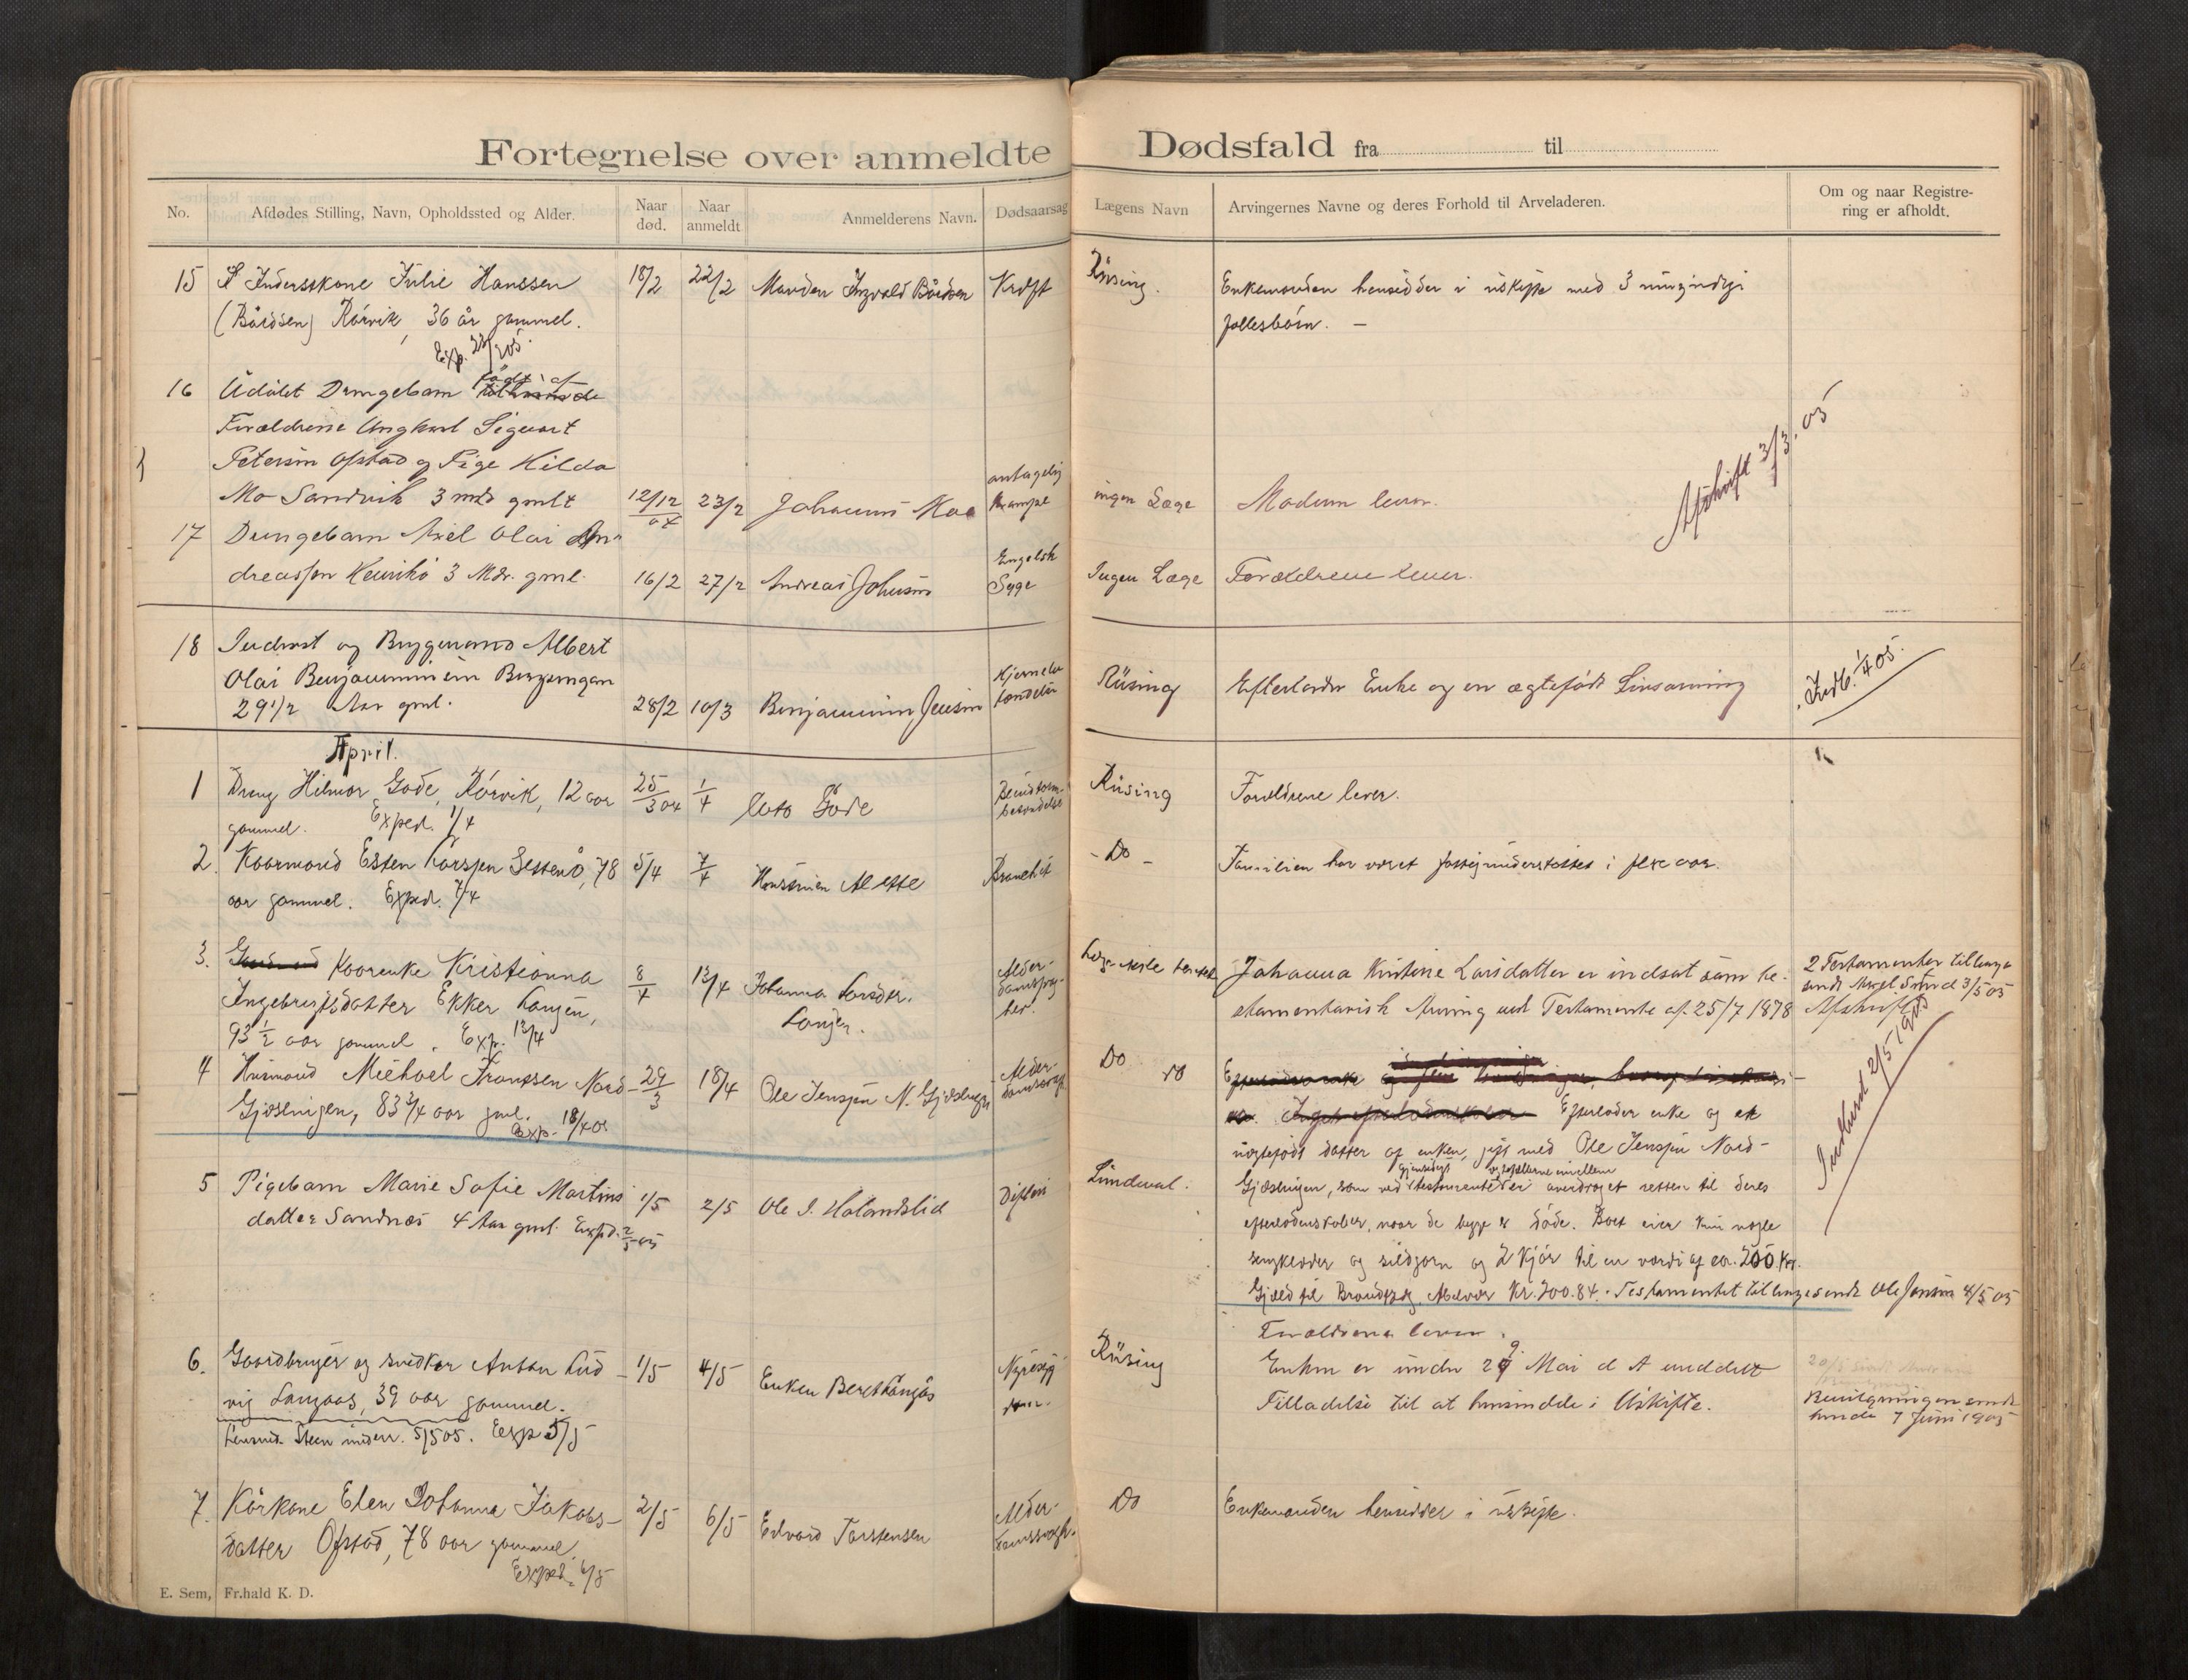 Fortegnelse over anmeldte Dødsfald fra til
No. Afdødes Stilling, Navn, Opholdssted og Alder. Naar død. Naar anmeldt Anmelderens Navn. Dødsaarsag Lægens Navn Arvingernes Navne og deres Forhold til Arveladeren. Om og naar Registrering er afholdt.
15 Inderstkone Julie Hanssen 18/2 22/2 Manden Ingvald Bårdsen Kræft Rüsing. Enkemanden hensidder i uskifte med 3 umyndige
(Bårdsen) Rørvik, 36 år gammel. fellesbørn. —
Exp. 22/2 05.
16 Udøbt Drengebarn født af
Forældrene Ungkarl Siguart
Petersen Opstad og Pige Hilda
Mo Sandvik 3 mdr gmlt 12/12 04 23/2 Johannes Moe antagelig Krampe ingen Læge Moderen lever. Afskrift 3/3.05
17 Drengebarn Axel Olai An-
dreassen 3 Mdr. gml. 16/2 27/2 Andreas Johnsen Engelsk Syge Ingen Læge Forældrene lever.
18 Inderst og Brygmand Albert
Olai Benjaminsen
29 1/2 Aar gml. 28/2 10/3 Benjamin Jensen Rüsing Efterlader Enke og en ægtefødt Livsarving Indb. 1/4 05.
April.
1 Dreng Hilmar Gode, Rørvik, 12 aar 25/3 04 1/4 Otto Gode Rüsing Forældrene lever.
gammel. Exped. 1/4
2. Kaarmand Esten Larssen 78 5/4 7/4 Alette Bronchit - Do - Familien har været fattigunderstøttet i flere aar.
aar gammel. Exped. 7/4
3. Kaarenke Kristianna 8/4 13/4 Johanna Larsdtr. Alder-
Ingebrigtsdatter Ekker Langen, Langen.
93 1/2 aar gammel. Exp. 13/4
Johanna Kristine Larsdatter er indsat som te-
stamentarisk Arving ved Testamente af 25/7 1878
2 Testamenter tilbage
sendt 3/5 05
Afskrift
4 Husmand Michael Franssen Nord- 29/3 18/4 Ole Jenssen N. Gjæslingen Alder- Do do
Gjæslingen, 83 3/4 aar gml. Exp. 18/4 05
Efterlader enke og ek
uægtefødt datter af enken, gift med Ole Jenssen Nord-
gjensidigt
Gjæslingen, som ved testamente er overdraget retten til deres
efterladenskaber, naar de begge er døde. Boet eier kun nogle
sengklæder og sildgarn og 2 Kjør til en værdi af ca. 200 Kr.
Gjæld til Kr. 200.84. Testamentet tilbagesendt Ole Jensen 4/5 05
Indberet 2/5 1905
5 Pigebarn Marie Sofie Martins 1/5 2/5 Ole J. Difteri Lindwal.
datter Sandnæs 4 Aar gml. Exped. 2/5 05
Forældrene lever.
6. Gaardbruger og snedker Anton Lud- 1/5 4/5 Enken Beret Langås Rüsing Enken er under 29 Mai d A meddelt
vig Langaas, 39 aar gammel. Tilladelse til at hensidde i Uskifte.
Lensmd. Steen underr. 5/5 05. Exp 5/5
Bevilgningen sendt
hende 7 Juni 1905
7. Kårkone Elen Johanna Jakobs- 2/5 6/5 Edvard Torstensen Alder- Do Enkemanden hensidder i uskifte.
datter Ofstad, 78 aar gammel.
Exped. 6/5
E. Sem, Fr.hald K. D.